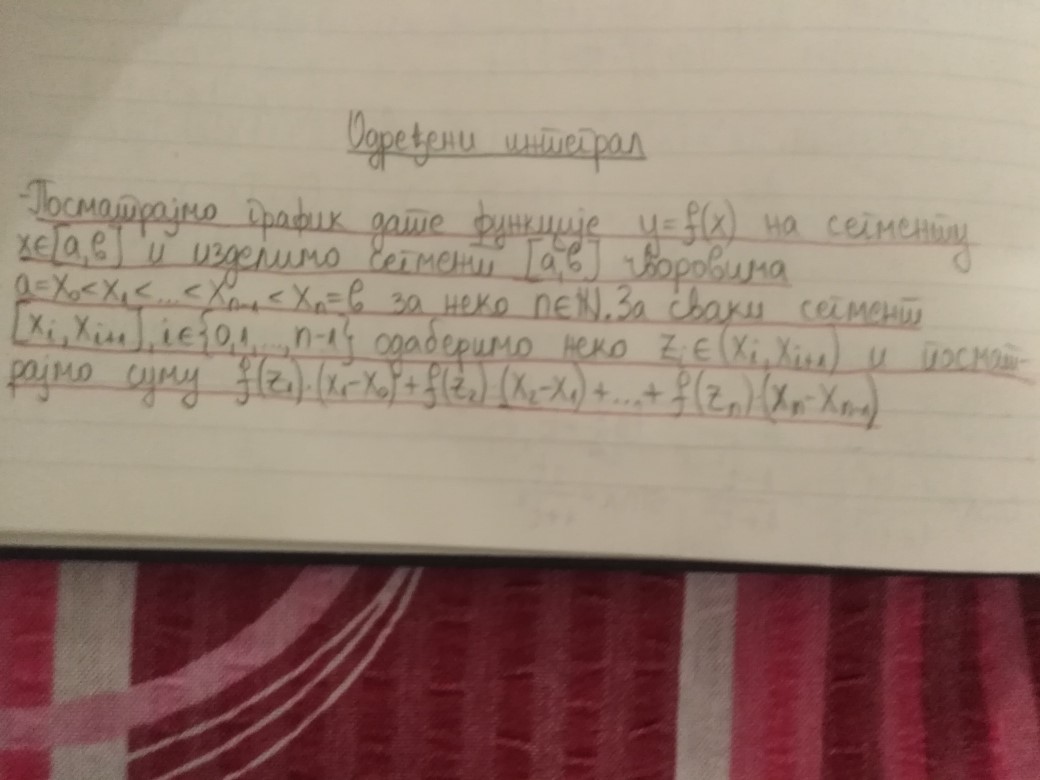 Одређени интеграл
-Посматрајмо график дате функције y=f(x) на сегменту
x∈[a,b] и изделимо сегмент [a,b] чворовима
a=x₀<x₁<...<xₙ₋₁<xₙ=b за неко n∈ℕ. За сваки сегмент
[xᵢ, xᵢ₊₁], i∈{0,1,...,n-1} одаберимо неко zᵢ∈(xᵢ, xᵢ₊₁) и посмат-
рајмо суму f(z₁)·(x₁-x₀)+f(z₂)·(x₂-x₁)+...+f(zₙ)·(xₙ-xₙ₋₁)